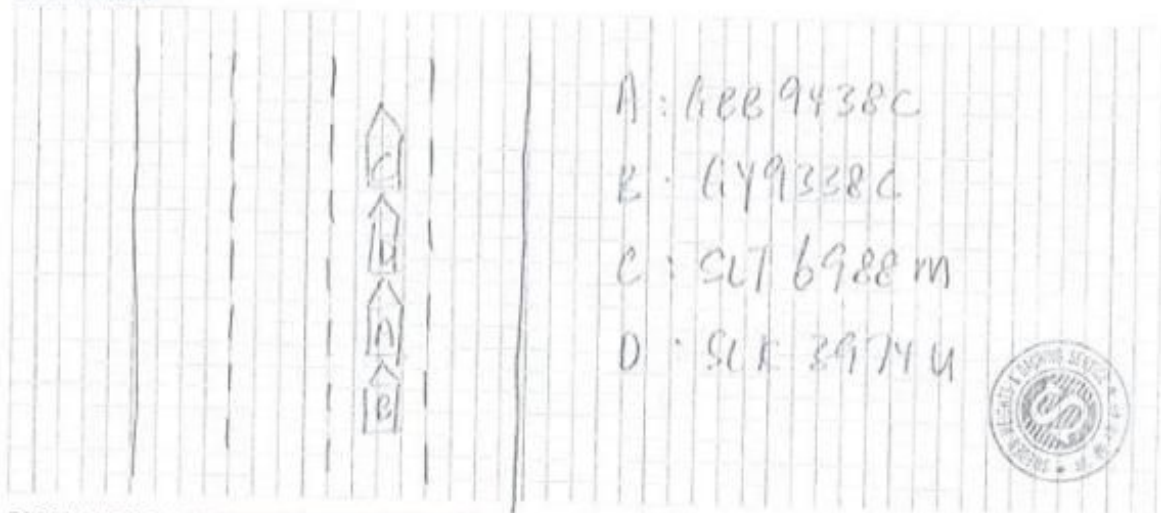 C
D
A
B
A: GBB9438C
B: GY9338C
C: SLT 6988 M
D: SLK 3974 U